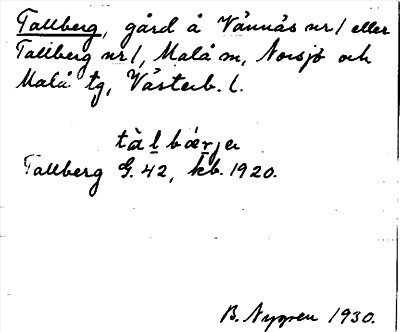 Tallberg, gård å Vännäs nr 1 eller
Tallberg nr 1, Malå sn, Norsjö och
Malå tg, Västerb. l.
tàl̲bær̲je
Tallberg G. 42, kb. 1920.
B. Nygren 1930.